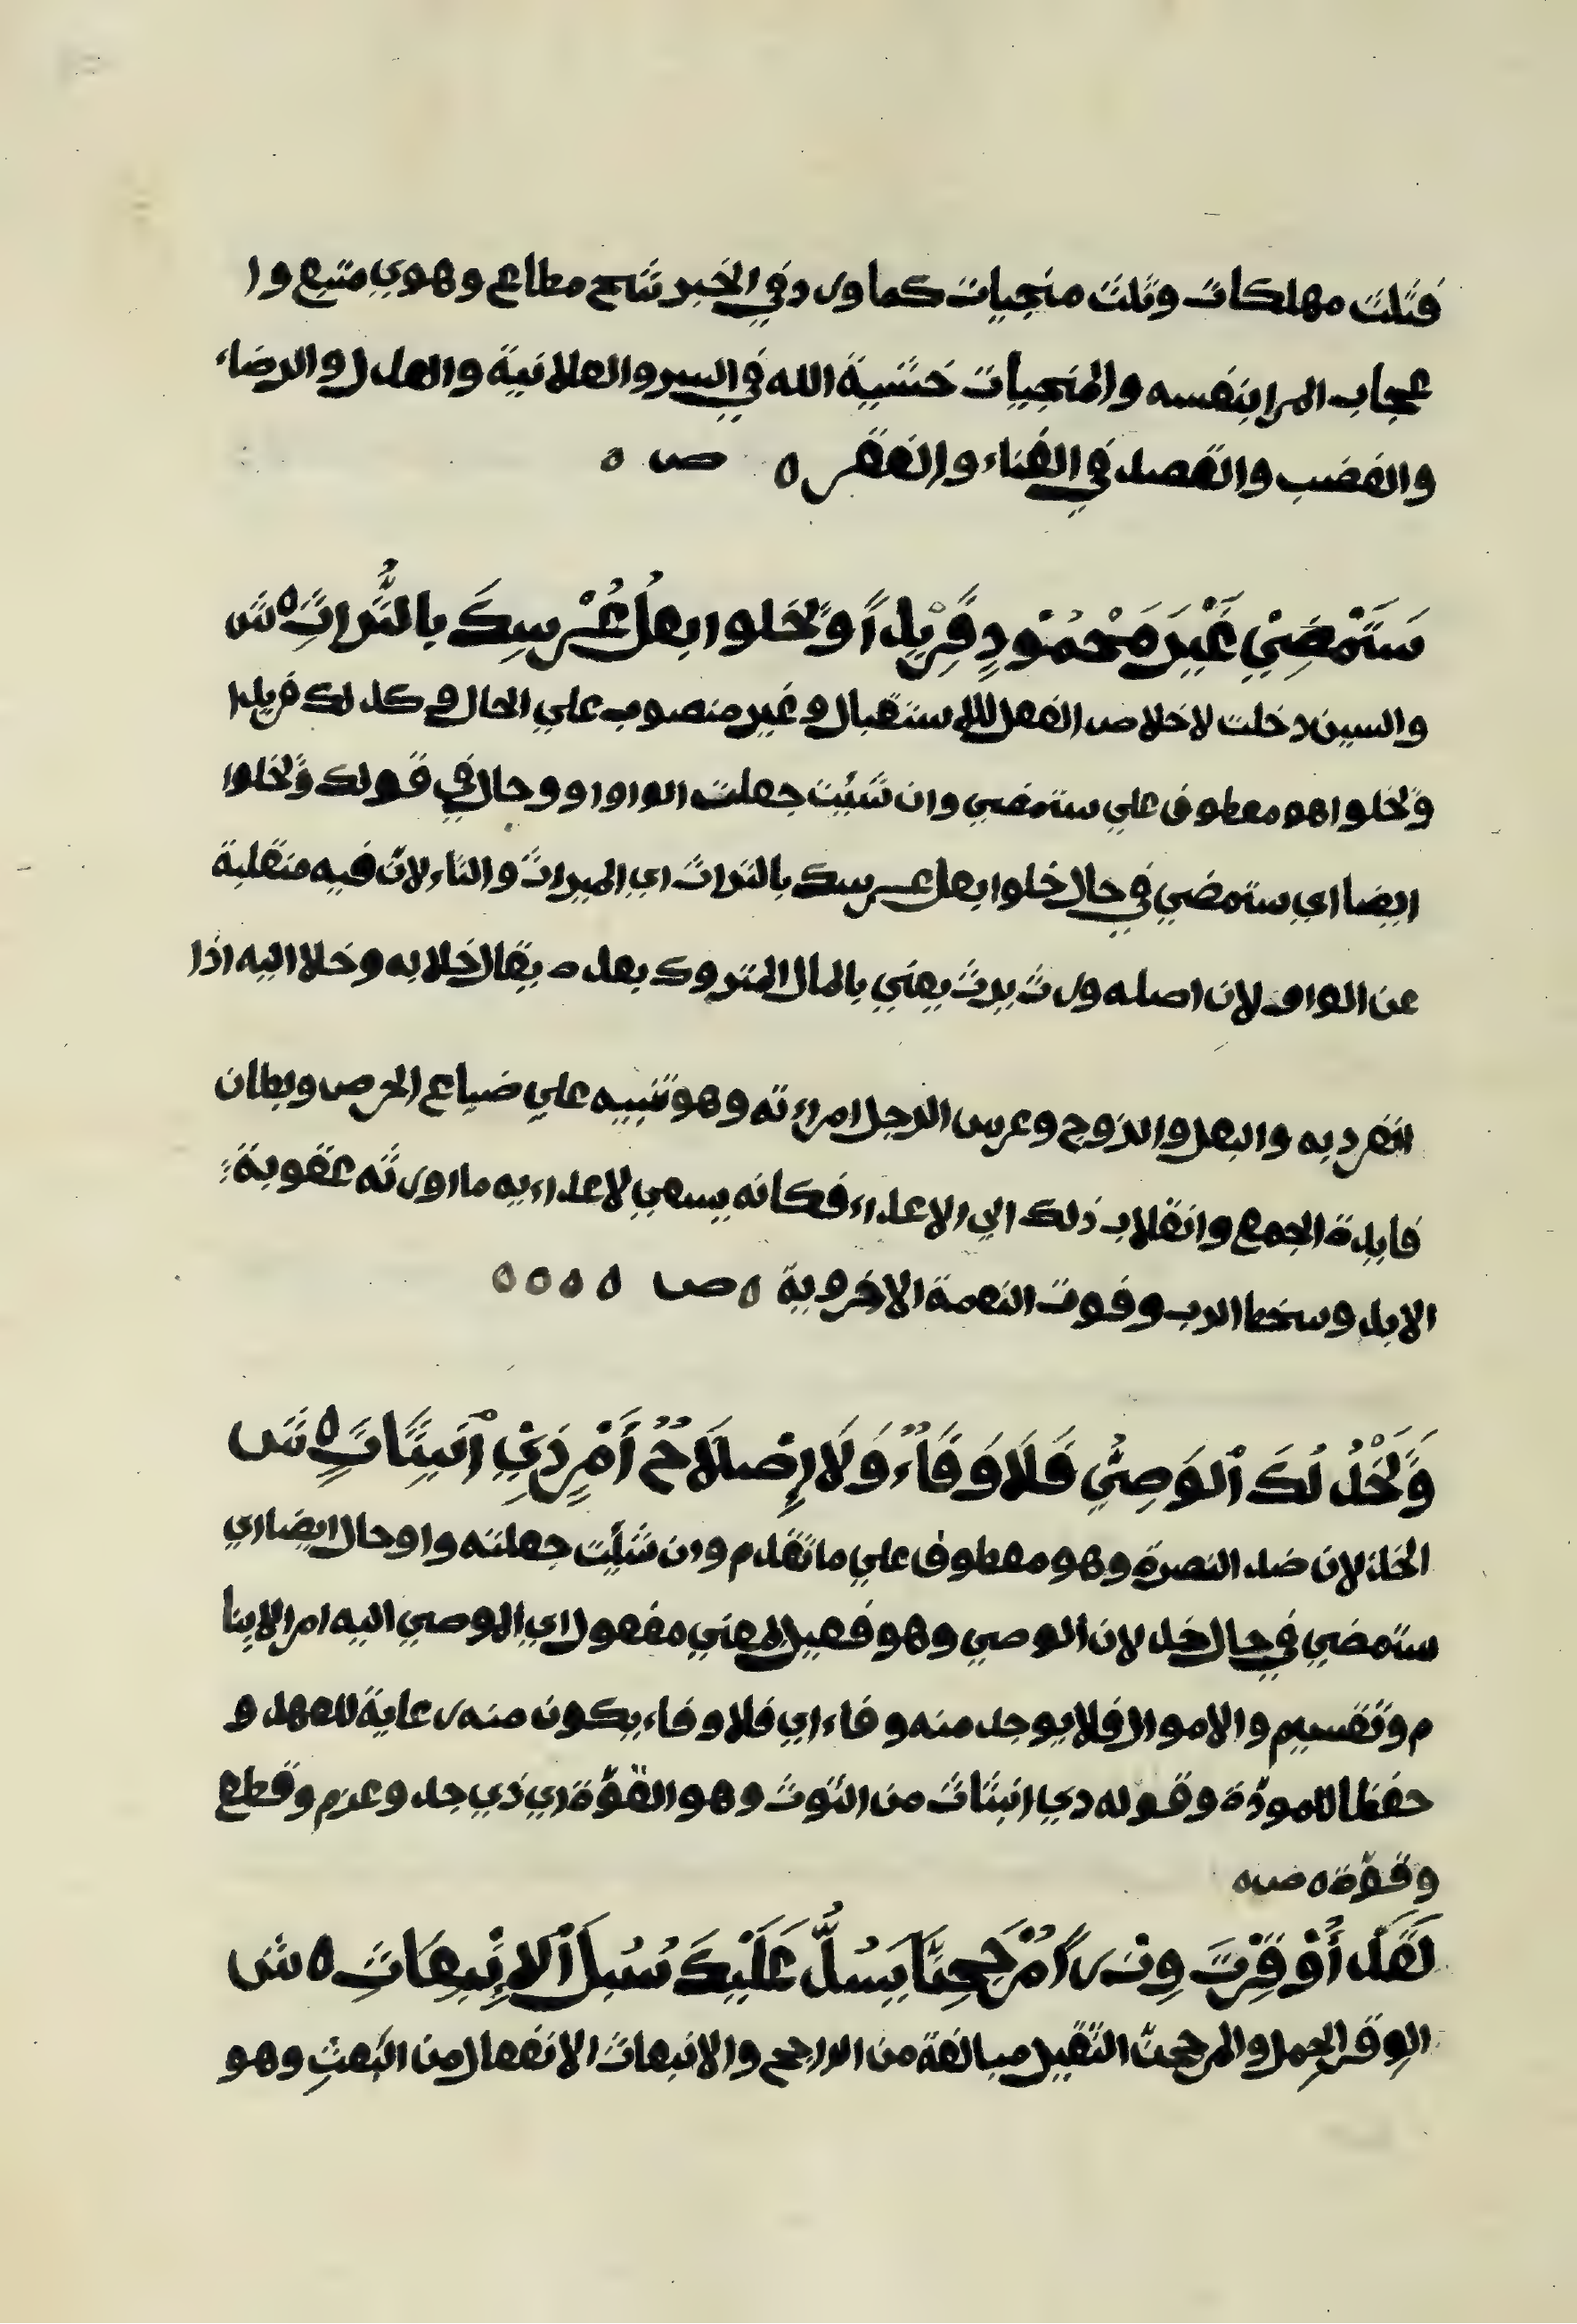 فثلث مهلكات وثلث منجيات كما ورد في الخبر شح مطاع وهوي متبع وا
عجاب المرا بنفسه والمنجيات خشية الله في السر والعلانية والعدل والرضاء
والغضب والقصد في الغناء والفقر ه ص ه
سَتَمْضِيْ غَيْرَ مَحْمُوْدٍ فَرِيْداً وَيَخلوا بعلُ عُرْسِكَ بالتُّراثِ ه ش
والسين دخلت لاخلاص الفعل للاستقبال وغير منصوب علي الحال وكذلك فريدا
ويخلوا هو معطوف علي ستمضي وان شئيت جعلت الواو واو حال في قولك ويخلوا
ايضا اي ستمضي في حال خلوا بعل عرسك بالتراث اي الميراث والتاء لان فيه منقلبة
عن الواو لان اصله ورث يرث يعني بالمال المتروك بعده يقال خلا به وخلا اليه اذا
انفرد به والبعل والزوج وعرس الرجل امراءته وهو تنبيه علي ضياع الحرص وبطلان
فايدة الجمع وانقلاب ذلك الي الاعداء فكانه يسعي لاعداءيه ما اورثه عقوبة
الابد وسخط الرب وفوت النعمة الاخروية ه ص ه ه ه ه
وَيَخْذُلُكَ ٱلوَصِيُّ فَلَا وَفَاءٌ وَلَا إِصْلَاحُ أَمْرٍ ذِيْ ٱنْبِتَاتِ ه ش
الخذلان ضد النصرة وهو معطوف علي ما تقدم وان شئيت جعلته واو حال ايضا اي
ستمضي في حال خذلان الوصي وهو فعيل بمعني مفعول اي الموصي اليه امر الايتا
م وتقسيم والاموال فلا يوجد منه وفاء اي فلا وفاء يكون منه رعاية للعهد و
حفظا للمودة وقوله دي انبتات من التوث وهو القوّة اي ذي جد وعزم وقطع
وقوّة ه ص ه
لَقَدْ أُوْقِرْتَ وِزْراً مُرْجَحِنّاً يَسُدُّ عَلَيْكَ سُبُلَ ٱلإِنْبِعَاثِ ه ش
الوِقر الحِمل والمرجحن الثقيل مبالغة من الراجح والانبعاث الانفعال من البَعثِ وهو